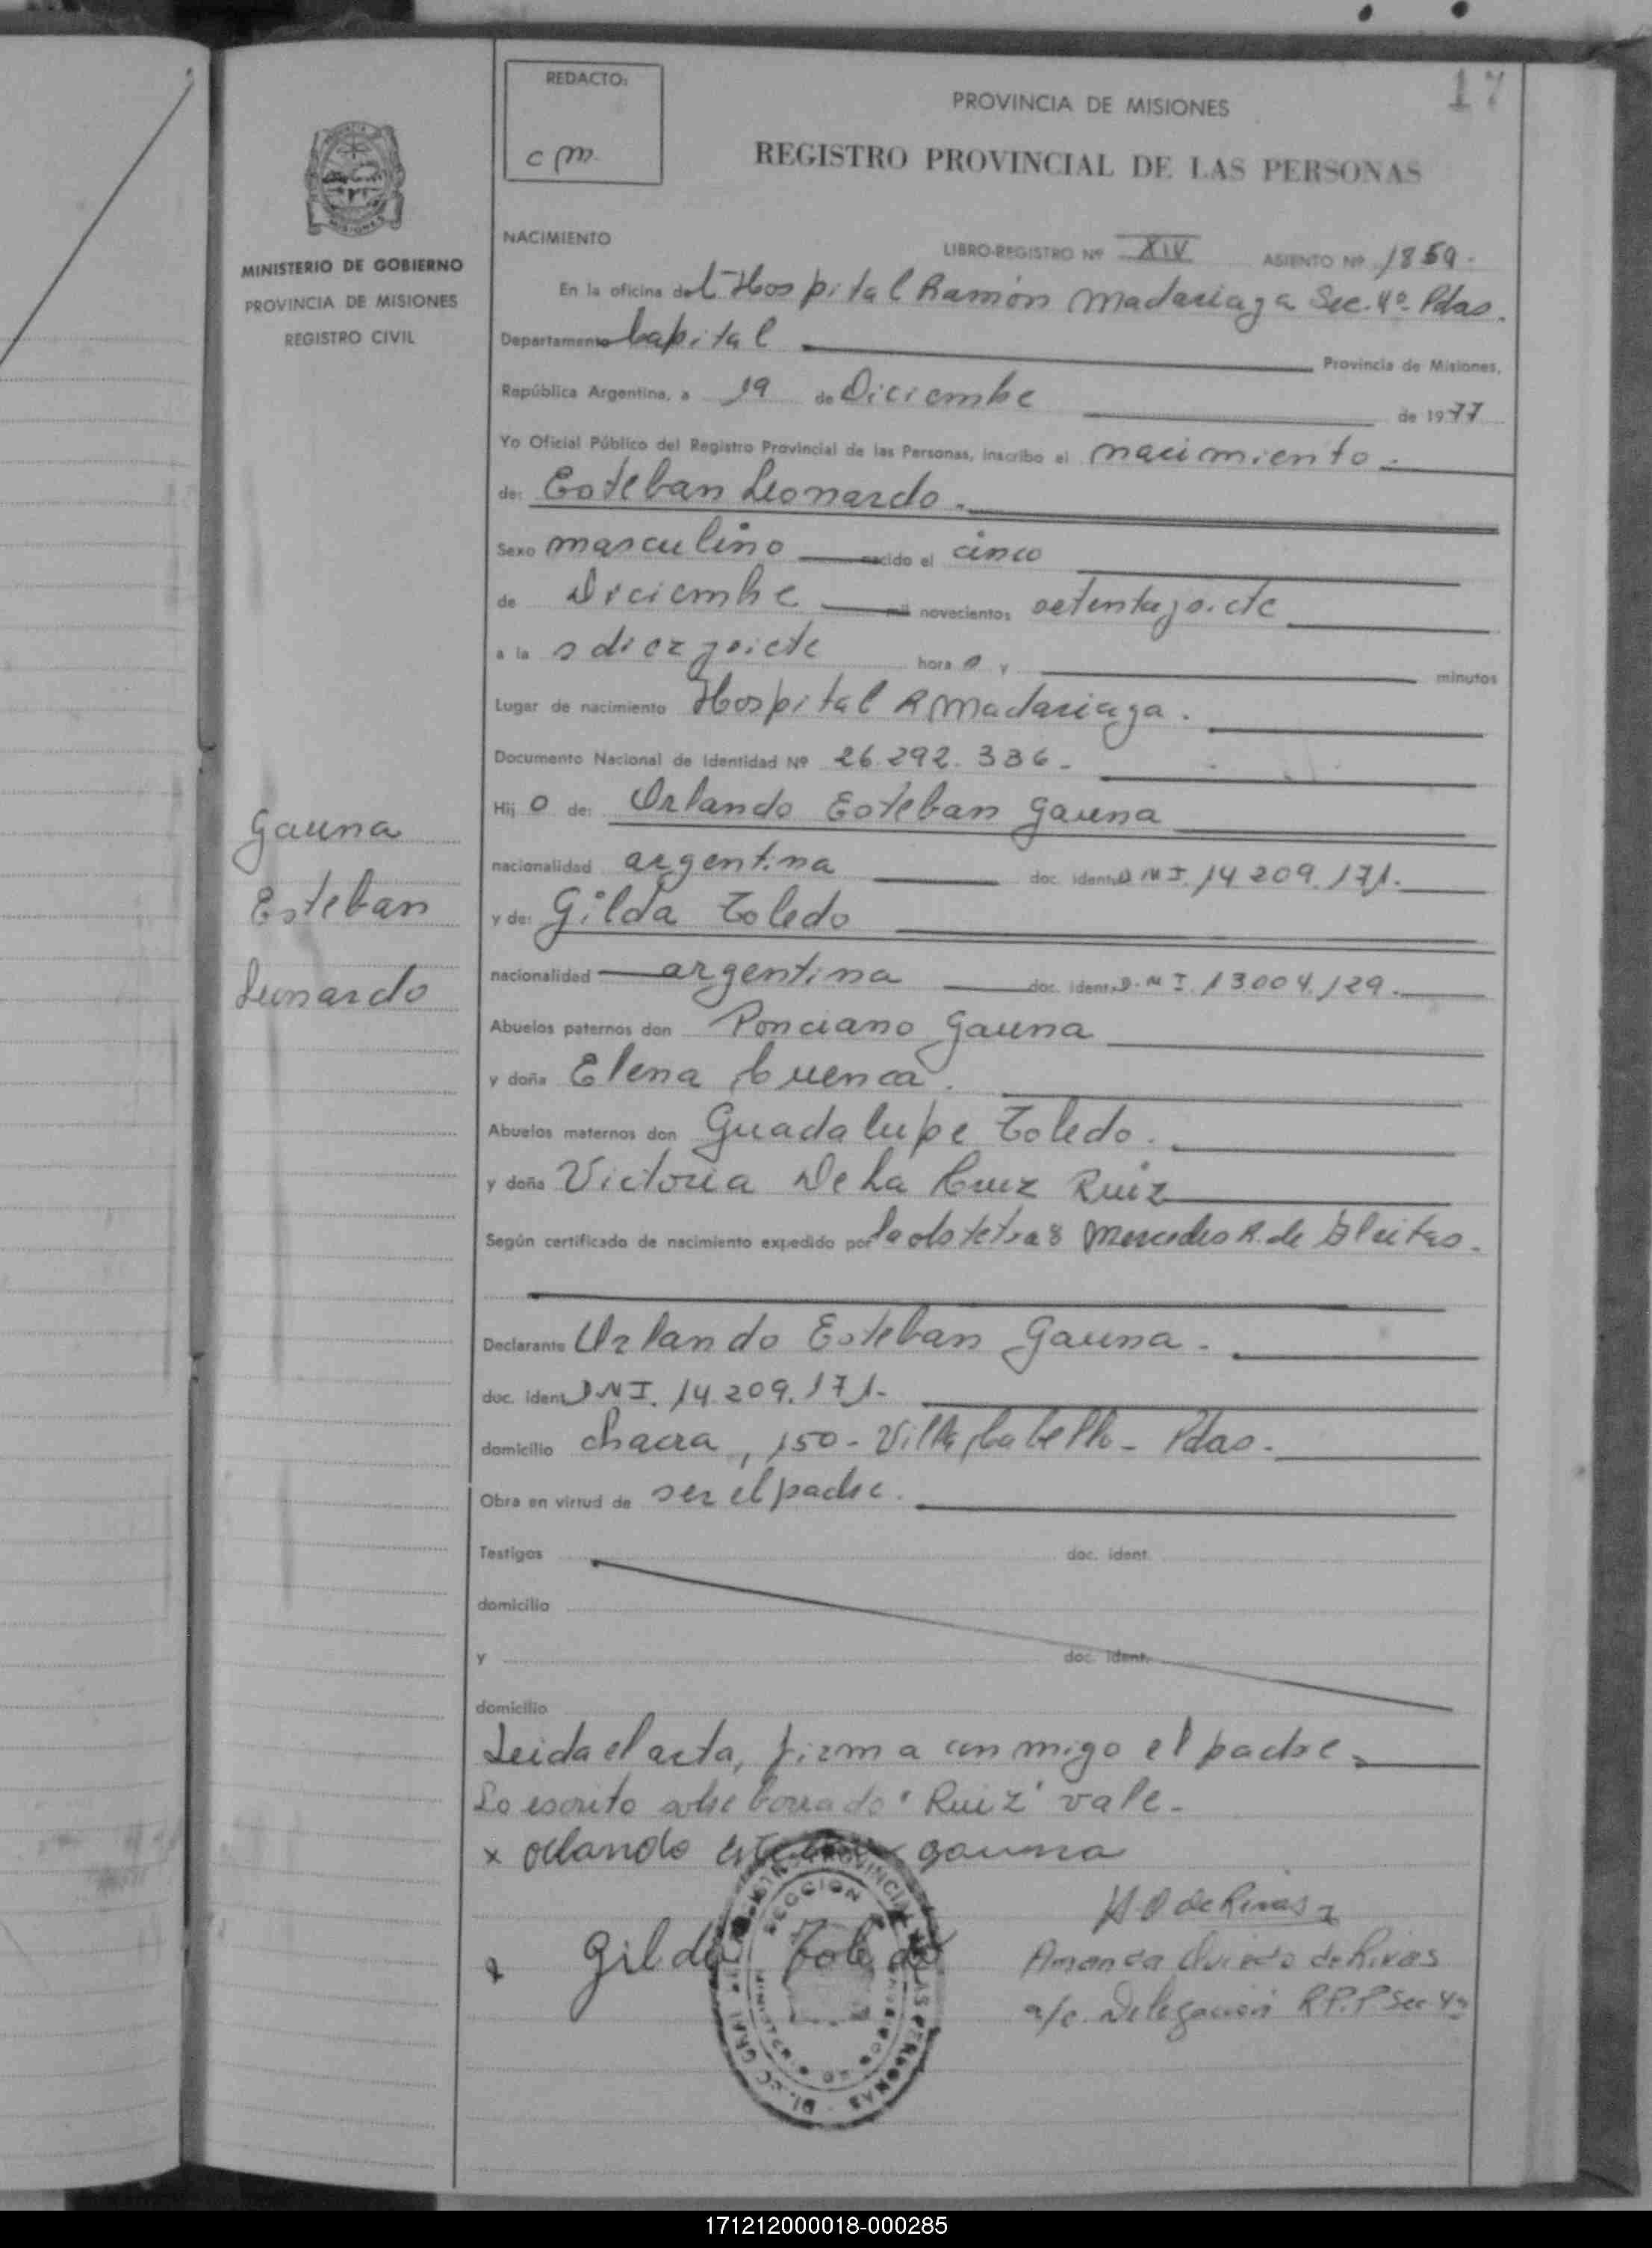 17
REDACTO:
cm.
PROVINCIA DE MISIONES
REGISTRO PROVINCIAL DE LAS PERSONAS
MINISTERIO DE GOBIERNO
PROVINCIA DE MISIONES
REGISTRO CIVIL
NACIMIENTO
LIBRO-REGISTRO Nº XIV ASIENTO Nº 1859.
En la oficina del Hospital Ramón Madariaga Sec. 4º Pdas.
Departamento Capital Provincia de Misiones,
República Argentina, a 19 de Diciembre de 1977
Yo Oficial Público del Registro Provincial de las Personas, inscribo el nacimiento.
de: Esteban Leonardo.
Sexo masculino nacido el cinco
de Diciembre mil novecientos setenta y siete
a la s diez y siete hora s y minutos
Lugar de nacimiento Hospital R Madariaga.
Documento Nacional de Identidad Nº 26.292.336.
Hij o de: Orlando Esteban Gauna
nacionalidad argentina doc. ident. D N I. 14 209.171.
y de: Gilda Toledo
nacionalidad argentina doc. ident. D. N I. 13.004.129.
Abuelos paternos don Ponciano Gauna
y doña Elena Cuenca.
Abuelos maternos don Guadalupe Toledo.
y doña Victoria De La Cruz Ruiz
Según certificado de nacimiento expedido por la obstetra Mercedes R. de
Gauna
Esteban
Leonardo
Declarante Orlando Esteban Gauna.
doc. ident DNI. 14.209.171.
domicilio chacra, 150 - Villa Cabello - Pdas.
Obra en virtud de ser el padre.
Testigos doc. ident.
domicilio
y doc. ident.
domicilio
Leida el acta, firma conmigo el padre
Lo escrito sobre borrado "Ruiz" vale.
x orlando esteban gauna
x Gilda Toledo
A. O de Rivas
Amanda Oviedo de Rivas
a/c. Delegación R.P.P Sec 4ª
SECCION
171212000018-000285